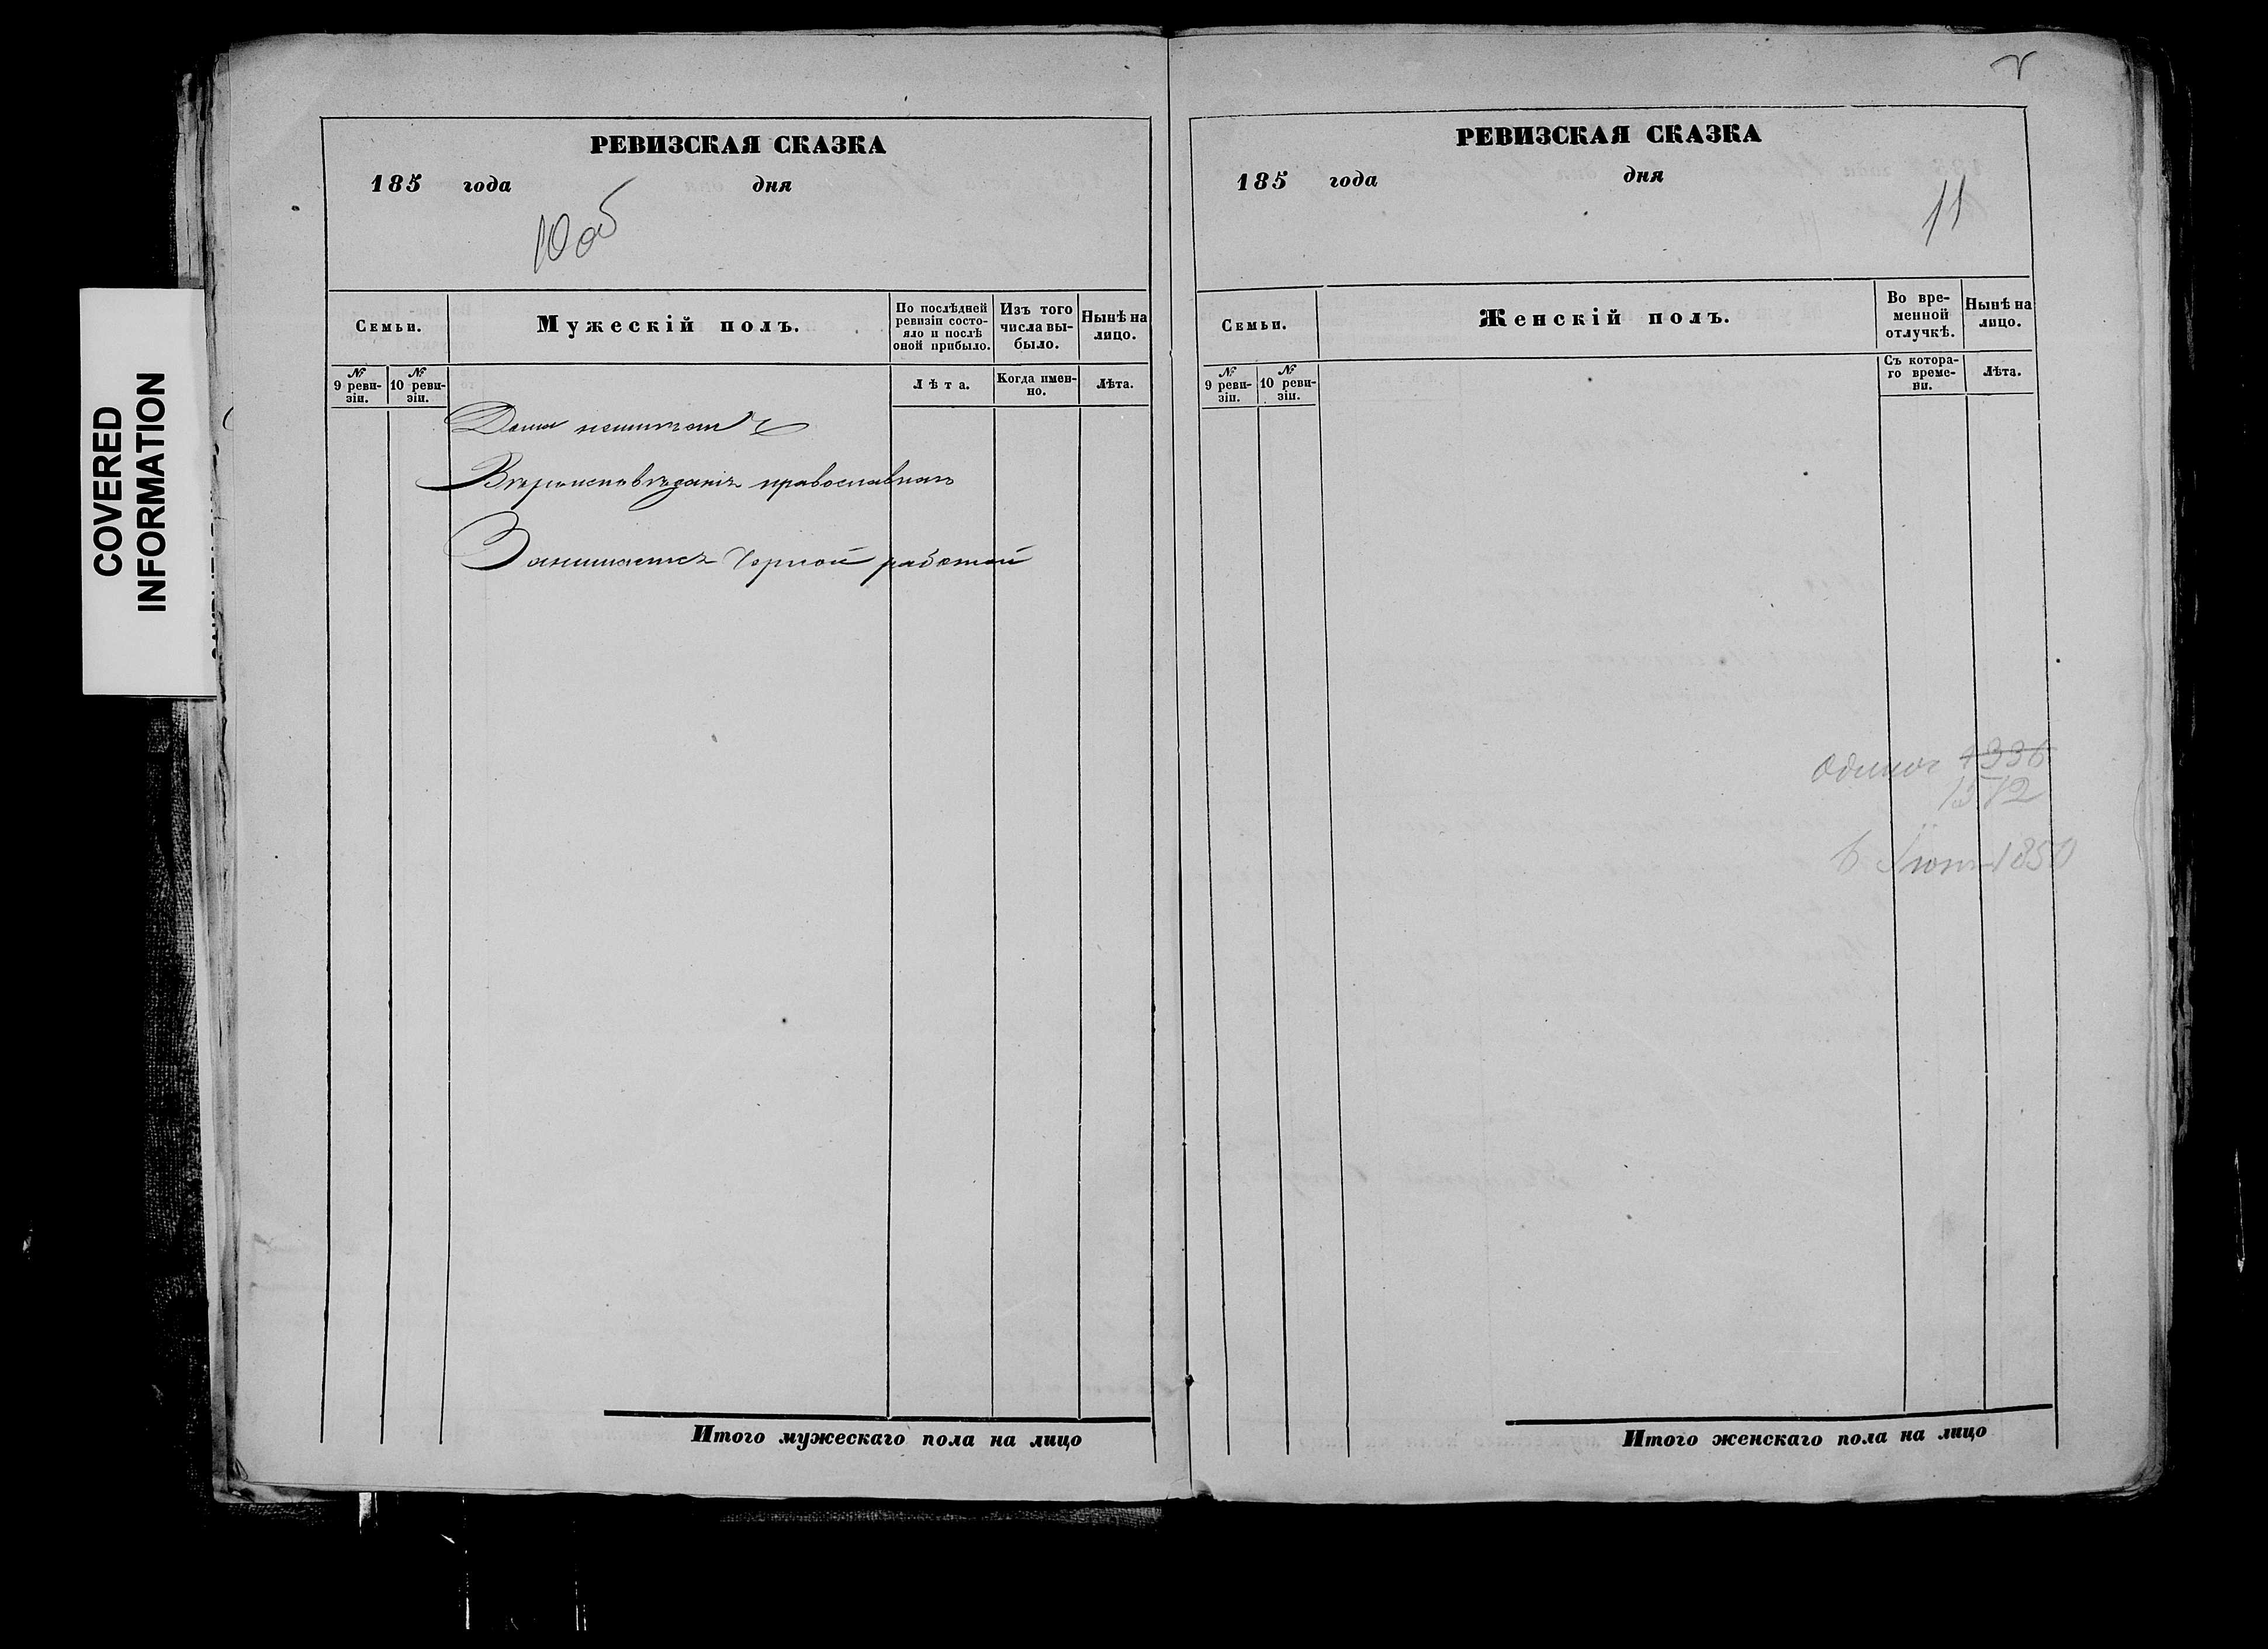 COVERED
INFORMATION
РЕВИЗСКАЯ СКАЗКА
185 года дня
10 об
Семьи.
Мужескій полъ.
По послѣдней ревизіи состояло и послѣ оной прибыло.
Изъ того числа выбыло.
Нынѣ на лицо.
№ 9 ревизіи.
№ 10 ревизіи.
Лѣта.
Когда именно.
Лѣта.
Дома неимѣетъ
Вѣроисповѣданія православнаго
Занимается Черной работой
Итого мужескаго пола на лицо
РЕВИЗСКАЯ СКАЗКА
185 года дня
11
Семьи.
Женскій полъ.
Во временной отлучкѣ.
Нынѣ на лицо.
№ 9 ревизіи.
№ 10 ревизіи.
Съ котораго времени.
Лѣта.
одинок 1336
1572
в Іюнѣ 1850
Итого женскаго пола на лицо